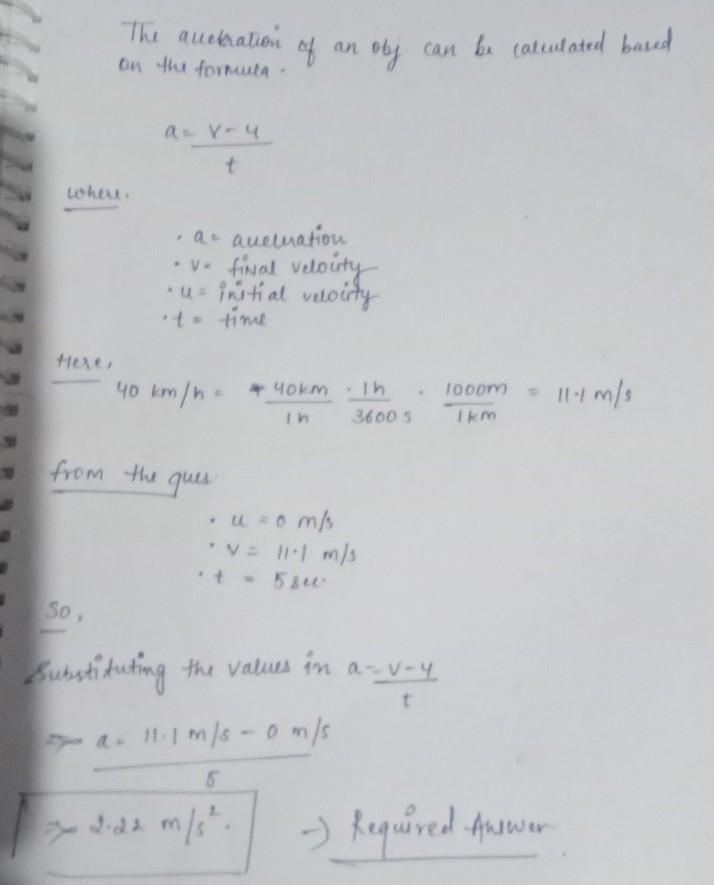 The acceleration of an obj can be calculated based
on the formula -
a = v-u
t
where,
• a = acceleration
• v = final velocity
• u = initial velocity
• t = time
Here,
40 km/h = 40km · 1h · 1000m = 11.1 m/s
1h 3600s 1km
from the ques.
• u = 0 m/s
• v = 11.1 m/s
• t = 5 sec.
So,
Substituting the values in a = v-u
t
⇒ a = 11.1 m/s - 0 m/s
5
⇒ 2.22 m/s². → Required Answer.